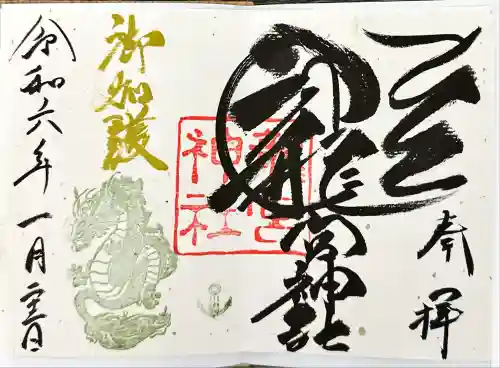 奉拝
龍宮神社
龍宮
神社
御加護
令和六年一月